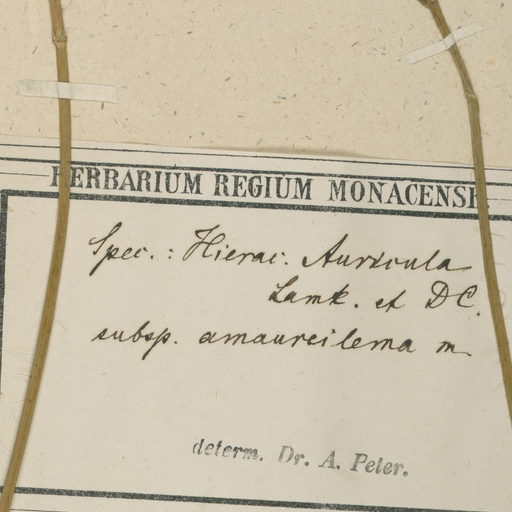 HERBARIUM REGIUM MONACENSE
Spec. : Hierac. Auricula
Lamk. et DC.
subsp. amaureilema m.
determ. Dr. A. Peter.